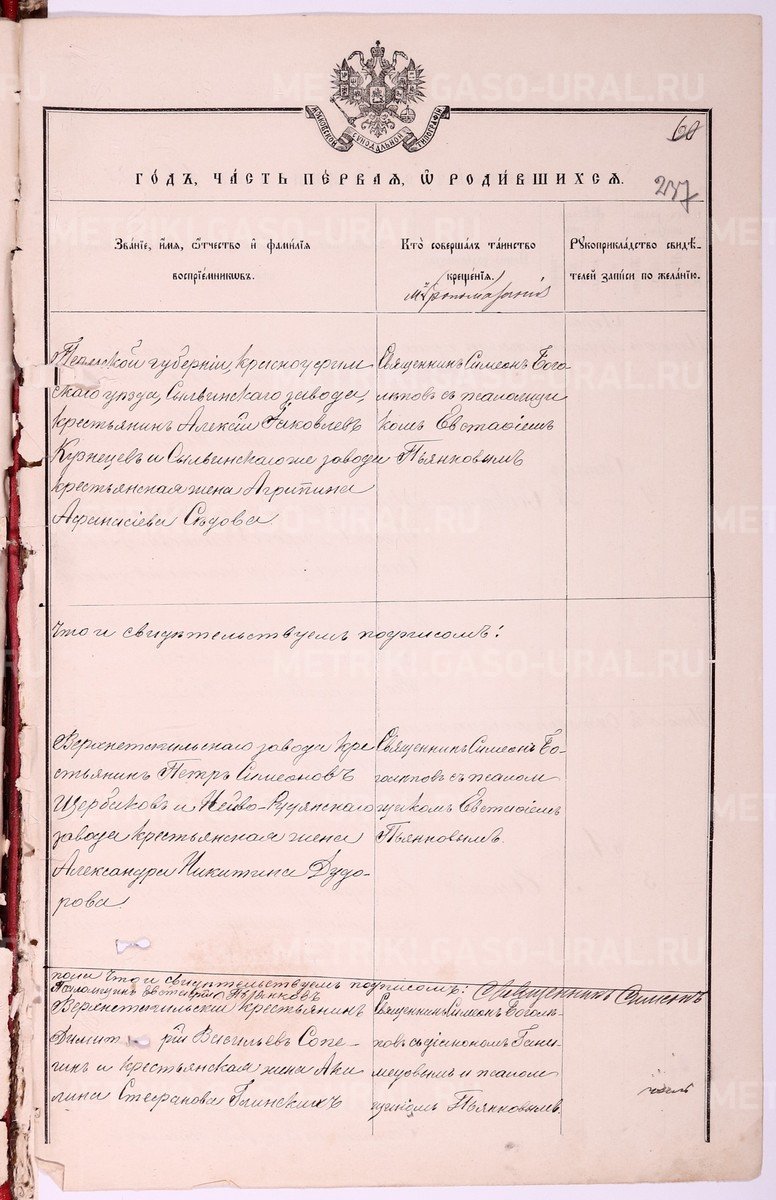 METRIKI.GASO-URAL.RU
МОСКОВСКОЙ СѴНОДАЛЬНОЙ ТИПОГРАФІИ
60
237
ГО́ДЪ, ЧА́СТЬ ПЕ́РВАЯ, Ѡ҆ РОДИ́ВШИХСЯ.
Зва́ніе, и҆́мя, ѻ҆́тчество и҆ фами́лія
воспріе́мниковъ.
Кто̀ соверша́лъ та́инство
креще́нія.
Рꙋкоприкла́дство свидѣ́-
телей за́писи по жела́нію.
Пермской губерніи, Красноуфим
скаго уѣзда, Сылвинскаго завода,
крестьянинъ Алексій Іаковлевъ
Кузнецевъ и Сылвинскаго же завода
крестьянская жена Агрипина
Афанасіева Сѣдова
Священникъ Симеонъ Бого
лѣповъ съ псаломщи
комъ Евстафіемъ
Пьянковымъ
Что и свидѣтельствуемъ подписомъ:
Верхнетагильскаго завода кре
стьянинъ Петръ Симеоновъ
Щербаковъ и Нейво-Рудянскаго
завода крестьянская жена
Александра Никитина Дудо-
рова.
Священникъ Симеонъ Бо-
голѣповъ съ псалом
щикомъ Евстафіемъ
Пьянковымъ.
что и свидѣтельствуемъ подписомъ: Священникъ Симеонъ
Псаломщикъ Евстафій Пьянковъ
Верхнетагильскій крестьянинъ
Димитрій Васильевъ Сопе-
гинъ и крестьянская жена Аки
лина Стефанова Глинскихъ
Священникъ Симеонъ Боголѣ-
повъ съ діакономъ
и псалом
щикомъ Пьянковымъ.